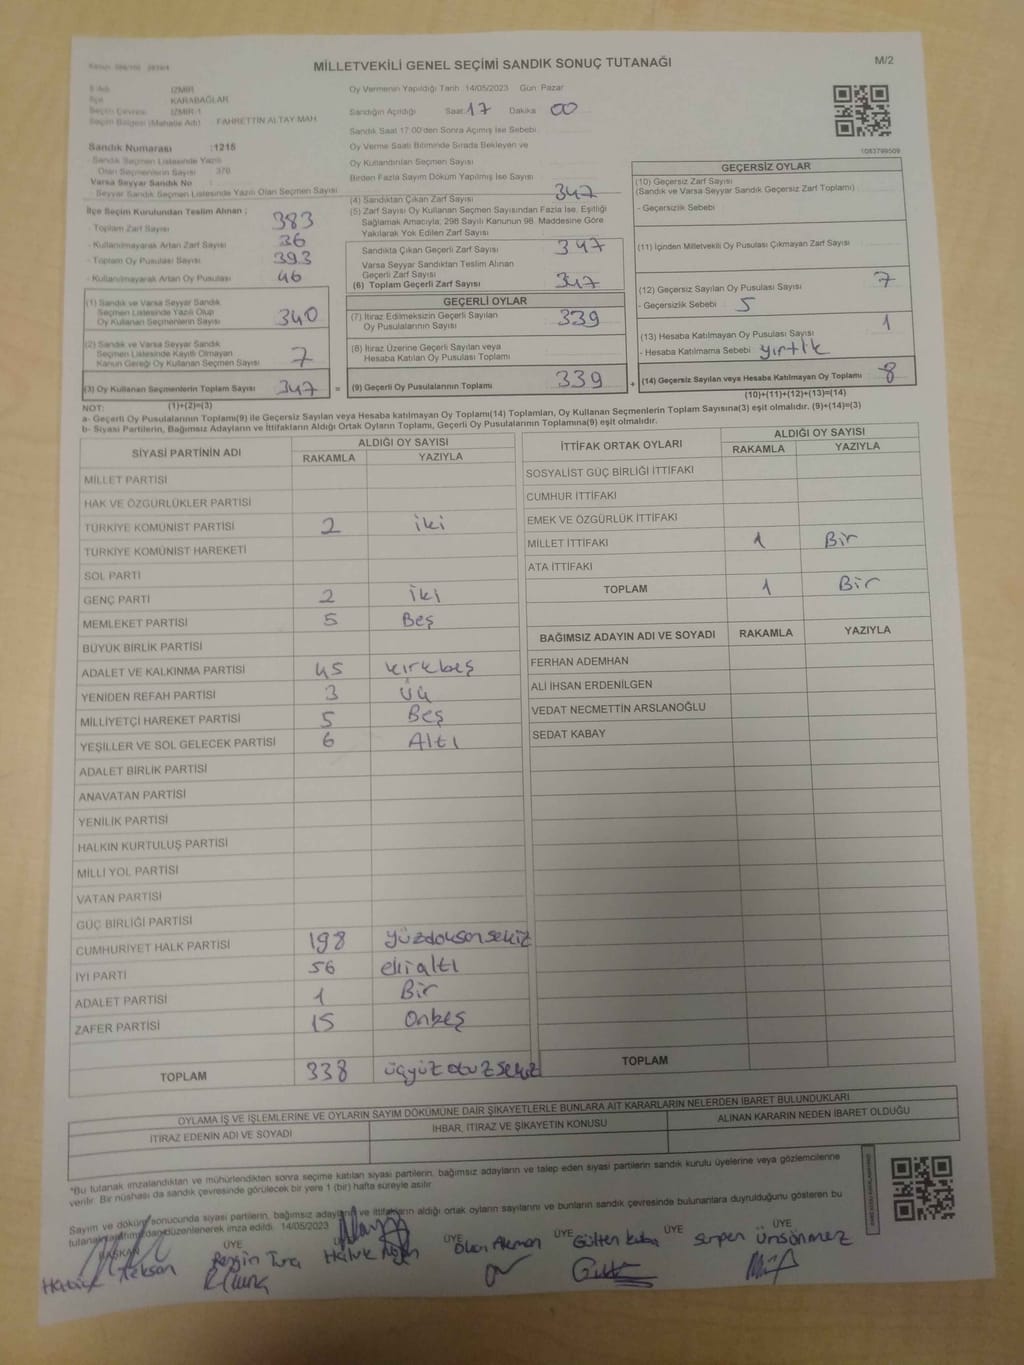 MİLLETVEKİLİ GENEL SEÇİMİ SANDIK SONUÇ TUTANAĞI
M/2
İZMİR
KARABAĞLAR
İZMİR-1
Seçim Bölgesi (Mahalle Adı) FAHRETTİN ALTAY MAH.
Oy Vermenin Yapıldığı Tarih: 14/05/2023 Gün: Pazar
Sandığın Açıldığı Saat: 17 Dakika 00
Sandık Saat 17:00'den Sonra Açılmış İse Sebebi
Oy Verme Saati Bitiminde Sırada Bekleyen ve
Oy Kullandırılan Seçmen Sayısı
Birden Fazla Sayım Döküm Yapılmış İse Sayısı
1083799509
Sandık Numarası :1215
- Sandık Seçmen Listesinde Yazılı
Olan Seçmen Sayısı 376
Varsa Seyyar Sandık No :
- Seyyar Sandık Seçmen Listesinde Yazılı Olan Seçmen Sayısı
İlçe Seçim Kurulundan Teslim Alınan ;
- Toplam Zarf Sayısı 383
- Kullanılmayarak Artan Zarf Sayısı 36
- Toplam Oy Pusulası Sayısı 393
- Kullanılmayarak Artan Oy Pusulası 46
(1) Sandık ve Varsa Seyyar Sandık
Seçmen Listesinde Yazılı Olup
Oy Kullanan Seçmenlerin Sayısı 340
(2) Sandık ve Varsa Seyyar Sandık
Seçmen Listesinde Kayıtlı Olmayan
Kanun Gereği Oy Kullanan Seçmen Sayısı 7
(3) Oy Kullanan Seçmenlerin Toplam Sayısı 347 =
(4) Sandıktan Çıkan Zarf Sayısı 347
(5) Zarf Sayısı Oy Kullanan Seçmen Sayısından Fazla İse, Eşitliği
Sağlamak Amacıyla, 298 Sayılı Kanunun 98. Maddesine Göre
Yakılarak Yok Edilen Zarf Sayısı
Sandıkta Çıkan Geçerli Zarf Sayısı 347
Varsa Seyyar Sandıktan Teslim Alınan
Geçerli Zarf Sayısı
(6) Toplam Geçerli Zarf Sayısı 347
GEÇERLİ OYLAR
(7) İtiraz Edilmeksizin Geçerli Sayılan
Oy Pusulalarının Sayısı 339
(8) İtiraz Üzerine Geçerli Sayılan veya
Hesaba Katılan Oy Pusulası Toplamı
(9) Geçerli Oy Pusulalarının Toplamı 339 +
GEÇERSİZ OYLAR
(10) Geçersiz Zarf Sayısı
(Sandık ve Varsa Seyyar Sandık Geçersiz Zarf Toplamı)
- Geçersizlik Sebebi
(11) İçinden Milletvekili Oy Pusulası Çıkmayan Zarf Sayısı
(12) Geçersiz Sayılan Oy Pusulası Sayısı 7
- Geçersizlik Sebebi 5
(13) Hesaba Katılmayan Oy Pusulası Sayısı 1
- Hesaba Katılmama Sebebi yırtık
(14) Geçersiz Sayılan veya Hesaba Katılmayan Oy Toplamı 8
(10)+(11)+(12)+(13)=(14)
NOT: (1)+(2)=(3)
a- Geçerli Oy Pusulalarının Toplamı(9) ile Geçersiz Sayılan veya Hesaba katılmayan Oy Toplamı(14) Toplamları, Oy Kullanan Seçmenlerin Toplam Sayısına(3) eşit olmalıdır. (9)+(14)=(3)
b- Siyasi Partilerin, Bağımsız Adayların ve İttifakların Aldığı Ortak Oyların Toplamı, Geçerli Oy Pusulalarının Toplamına(9) eşit olmalıdır.
SİYASİ PARTİNİN ADI ALDIĞI OY SAYISI
RAKAMLA YAZIYLA
MİLLET PARTİSİ
HAK VE ÖZGÜRLÜKLER PARTİSİ
TÜRKİYE KOMÜNİST PARTİSİ 2 iki
TÜRKİYE KOMÜNİST HAREKETİ
SOL PARTİ
GENÇ PARTİ 2 iki
MEMLEKET PARTİSİ 5 Beş
BÜYÜK BİRLİK PARTİSİ
ADALET VE KALKINMA PARTİSİ 45 kırkbeş
YENİDEN REFAH PARTİSİ 3 üç
MİLLİYETÇİ HAREKET PARTİSİ 5 Beş
YEŞİLLER VE SOL GELECEK PARTİSİ 6 Altı
ADALET BİRLİK PARTİSİ
ANAVATAN PARTİSİ
YENİLİK PARTİSİ
HALKIN KURTULUŞ PARTİSİ
MİLLİ YOL PARTİSİ
VATAN PARTİSİ
GÜÇ BİRLİĞİ PARTİSİ
CUMHURİYET HALK PARTİSİ 198 yüzdoksansekiz
İYİ PARTİ 56 elli altı
ADALET PARTİSİ 1 Bir
ZAFER PARTİSİ 15 Onbeş
TOPLAM 338 üçyüz otuz sekiz
İTTİFAK ORTAK OYLARI ALDIĞI OY SAYISI
RAKAMLA YAZIYLA
SOSYALİST GÜÇ BİRLİĞİ İTTİFAKI
CUMHUR İTTİFAKI
EMEK VE ÖZGÜRLÜK İTTİFAKI
MİLLET İTTİFAKI 1 Bir
ATA İTTİFAKI
TOPLAM 1 Bir
BAĞIMSIZ ADAYIN ADI VE SOYADI RAKAMLA YAZIYLA
FERHAN ADEMHAN
ALİ İHSAN ERDENİLGEN
VEDAT NECMETTİN ARSLANOĞLU
SEDAT KABAY
TOPLAM
OYLAMA İŞ VE İŞLEMLERİNE VE OYLARIN SAYIM DÖKÜMÜNE DAİR ŞİKAYETLERLE BUNLARA AİT KARARLARIN NELERDEN İBARET BULUNDUKLARI
İTİRAZ EDENİN ADI VE SOYADI İHBAR, İTİRAZ VE ŞİKAYETİN KONUSU ALINAN KARARIN NEDEN İBARET OLDUĞU
*Bu tutanak imzalandıktan ve mühürlendikten sonra seçime katılan siyasi partilerin, bağımsız adayların ve talep eden siyasi partilerin sandık kurulu üyelerine veya gözlemcilerine
verilir. Bir nüshası da sandık çevresinde görülecek bir yere 1 (bir) hafta süreyle asılır.
Sayım ve döküm sonucunda siyasi partilerin, bağımsız adayların ve ittifakların aldığı ortak oyların sayılarını ve bunların sandık çevresinde bulunanlara duyrulduğunu gösteren bu
tutanak tarafımızdan düzenlenerek imza edildi. 14/05/2023
BAŞKAN ÜYE ÜYE ÜYE ÜYE ÜYE
Gülten Serpen Ünsönmez